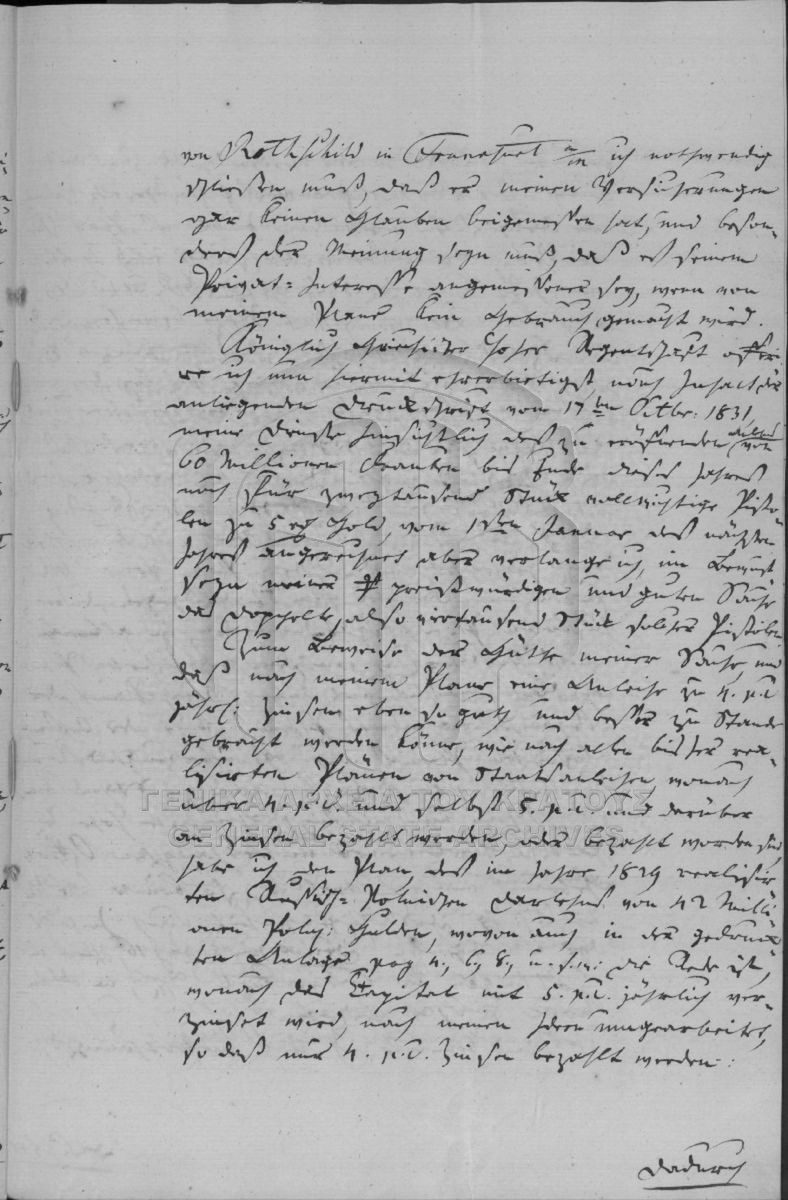 von Rothschild in Frankfurt a/m ich nothwendig
schließen muß, daß er meinen Versicherungen
gar keinen Glauben beigemessen hat, und beson-
ders der Meinung seyn muß, daß es seinem
Privat-Interesse angemessener sey, wenn von
meinem Plane kein Gebrauch gemacht wird.
Königlich Griechischer hoher Regentschaft offeri-
re ich nun hiermit ehrerbietigst nach Inhalt der
anliegenden Druckschrift vom 17ten Octbr: 1831
meine Dienste hinsichtlich des zu eröffnenden Anlehns von
60 Millionen Franken bis Ende dieses Jahres
noch für zweytausend Stück vollwichtige Pisto-
len zu 5 rth Gold, vom 1sten Januar des nächsten
Jahres angerechnet aber verlange ich, im Bewußt
seyn meiner preißwürdigen und guten Sache
das doppelte, also viertausend Stück solcher Pistolen.
Zum Beweise der Güthe meiner Sache, und
daß nach meinem Plane eine Anleihe zu 4. p.C.
jährl: Zinsen eben so guth und besser zu Stande
gebracht werden könne, wie nach allen bisher rea-
lisirten Plänen von Staatsanleihen, wonach
über 4. p.C. und selbst 5. p.C. und darüber
an Zinsen bezahlt werden, oder bezahlt worden sind,
habe ich den Plan, des im Jahre 1829 realisir-
ten Russisch-Polnischen Darlehns von 42 Milli-
onen Poln: Gulden, wovon auch in der gedruck-
ten Anlage pag 4., 6, 8., u. s. w: die Rede ist,
wonach das Capital mit 5. p.C. jährlich ver-
zinset wird, nach meinen Ideen umgearbeitet,
so daß nur 4. p.C. Zinsen bezahlt werden:
dadurch
ΓΕΝΙΚΑ ΑΡΧΕΙΑ ΤΟΥ ΚΡΑΤΟΥΣ
GENERAL STATE ARCHIVES